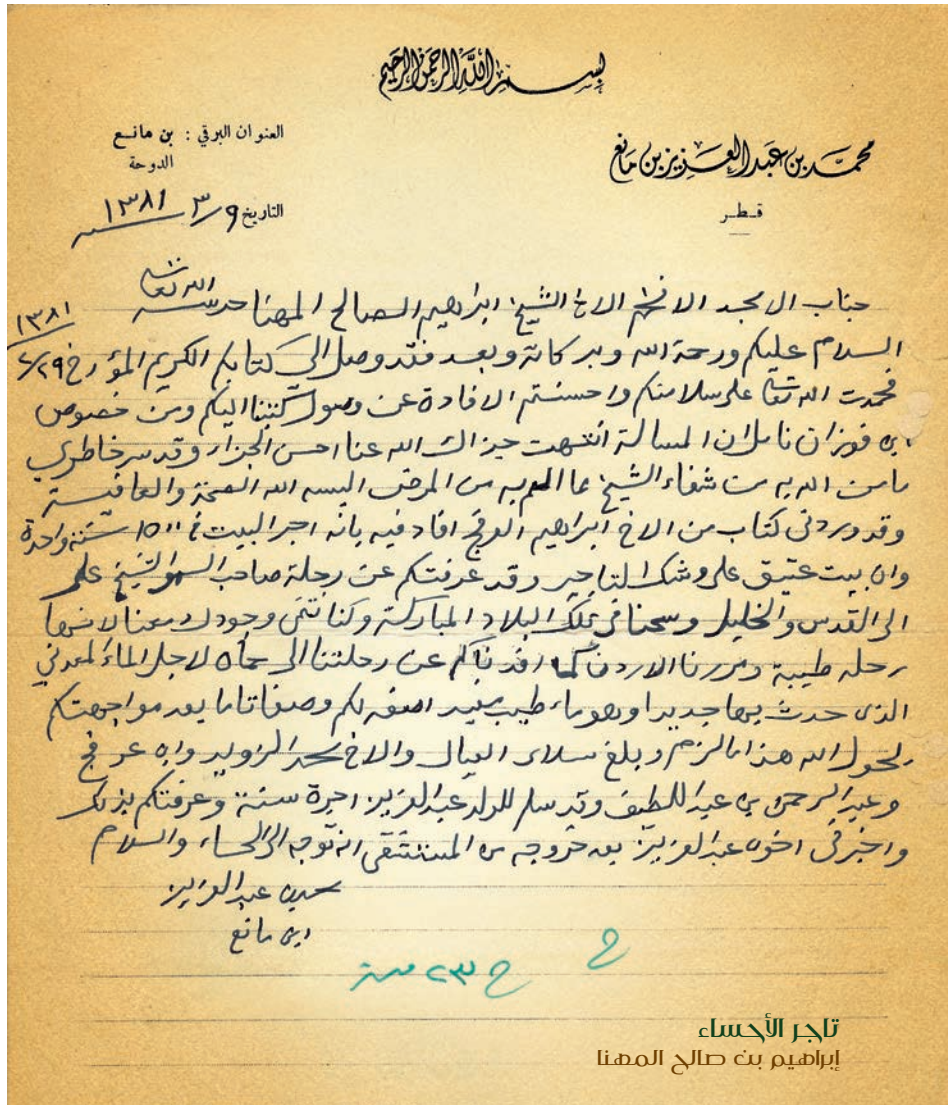 بسم الله الرحمن الرحيم
محمد بن عبد العزيز بن مانع
قطر
العنوان البرقي : بن مانع
الدوحة
التاريخ ٩/٣/١٣٨١
جناب الامجد الافخم الاخ الشيخ ابراهيم الصالح المهنا حرسه الله تعالى
السلام عليكم ورحمة الله وبركاته وبعد فقد وصل الي كتابكم الكريم المؤرخ ٢٩/٢ ١٣٨١
فحمدت الله تعالى على سلامتكم واحسنتم الافادة عن وصول كتبنا اليكم ومن خصوص
ابن فوزان نامل ان المسالة انتهت جزاك الله عنا احسن الجزاء وقد سر خاطري
ما من الله به من شفاء الشيخ مما الم به من المرض البسه الله الصحة والعافية
وقد وردني كتاب من الاخ ابراهيم العرفج افاد فيه بانه اجر البيت سنة واحدة
وان بيت عتيق على وشك التاجير وقد عرفتكم عن رحلة صاحب السمو الشيخ علي
الى القدس والخليل وسحنا في تلك البلاد المباركة وكنا نتمنى وجودك معنا لانها
رحلة طيبة ومررنا الاردن كما افدناكم عن رحلتنا الى حماة لاجل الماء المعدني
الذي حدث بها جديدا وهو ماء طيب مفيد اصفه لكم وصفا تاما بعد مواجهتكم
بحول الله هذا ما لزم وبلغ سلامي العيال والاخ محمد الزويد وابن عرفج
وعبد الرحمن بن عبد اللطيف وقد سلم للولد عبد العزيز اجرة سنة وعرفتكم بذلك
واخبرني اخوه عبد العزيز بعد خروجه من المستشفى انه توجه الى الحساء والسلام
محمد بن عبد العزيز
ابن مانع
ح
ح ٢٣ منه
تاجر الأحساء
إبراهيم بن صالح المهنا